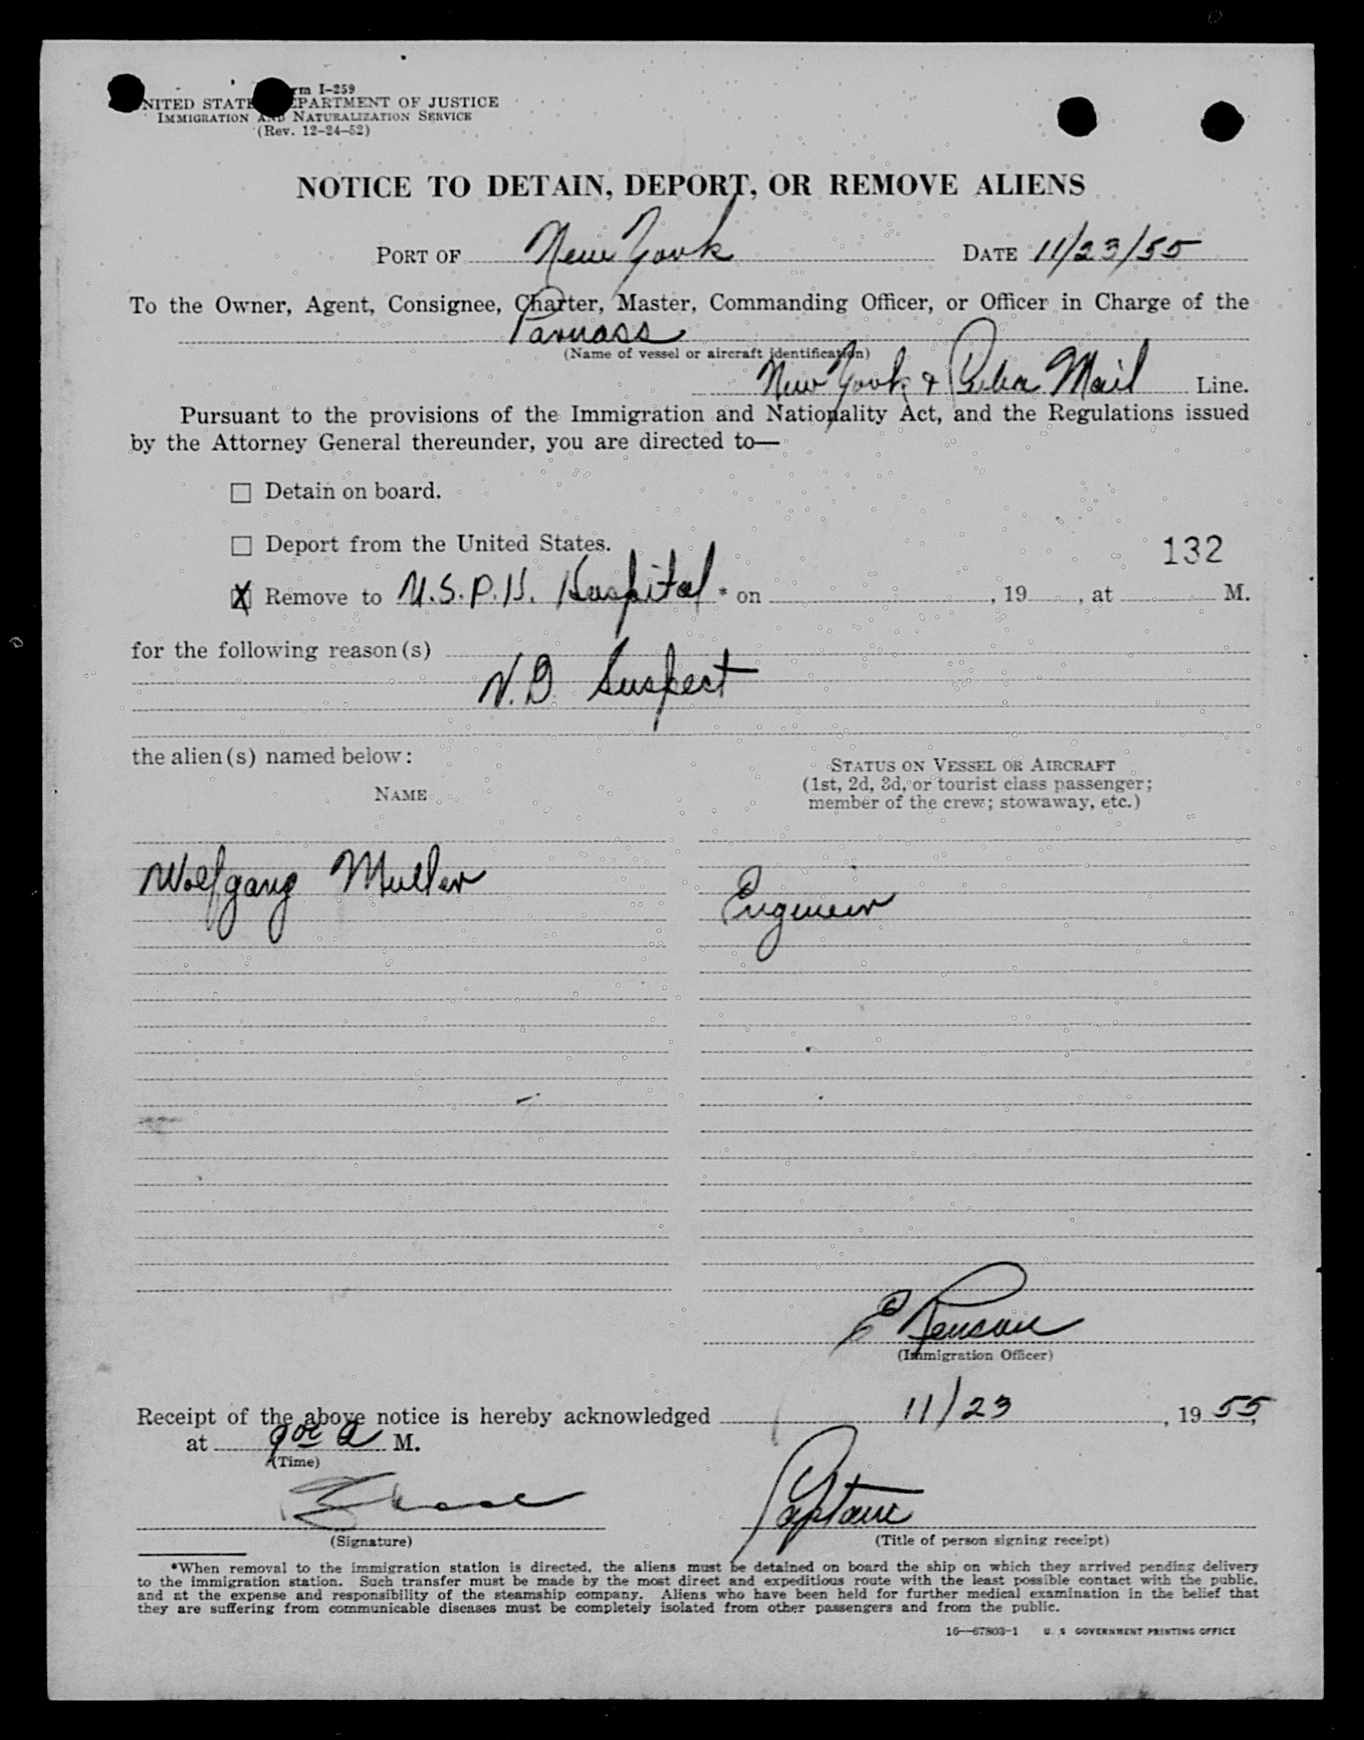 Form I-259
UNITED STATES DEPARTMENT OF JUSTICE
IMMIGRATION AND NATURALIZATION SERVICE
(Rev. 12-24-52)
NOTICE TO DETAIN, DEPORT, OR REMOVE ALIENS
PORT OF New York DATE 11/23/55
To the Owner, Agent, Consignee, Charter, Master, Commanding Officer, or Officer in Charge of the
Parnass
(Name of vessel or aircraft identification)
New York & Cuba Mail Line.
Pursuant to the provisions of the Immigration and Nationality Act, and the Regulations issued
by the Attorney General thereunder, you are directed to—
☐ Detain on board.
☐ Deport from the United States.
132
☒ Remove to U.S.P.H. Hospital * on , 19 , at M.
for the following reason(s)
V.D Suspect
the alien(s) named below:
NAME
STATUS ON VESSEL OR AIRCRAFT
(1st, 2d, 3d, or tourist class passenger;
member of the crew; stowaway, etc.)
Wolfgang Muller
Engineer
(Immigration Officer)
Receipt of the above notice is hereby acknowledged 11/23, 1955,
at M.
(Time)
Captain
(Signature) (Title of person signing receipt)
*When removal to the immigration station is directed, the aliens must be detained on board the ship on which they arrived pending delivery
to the immigration station. Such transfer must be made by the most direct and expeditious route with the least possible contact with the public,
and at the expense and responsibility of the steamship company. Aliens who have been held for further medical examination in the belief that
they are suffering from communicable diseases must be completely isolated from other passengers and from the public.
16—67803-1 U. S GOVERNMENT PRINTING OFFICE